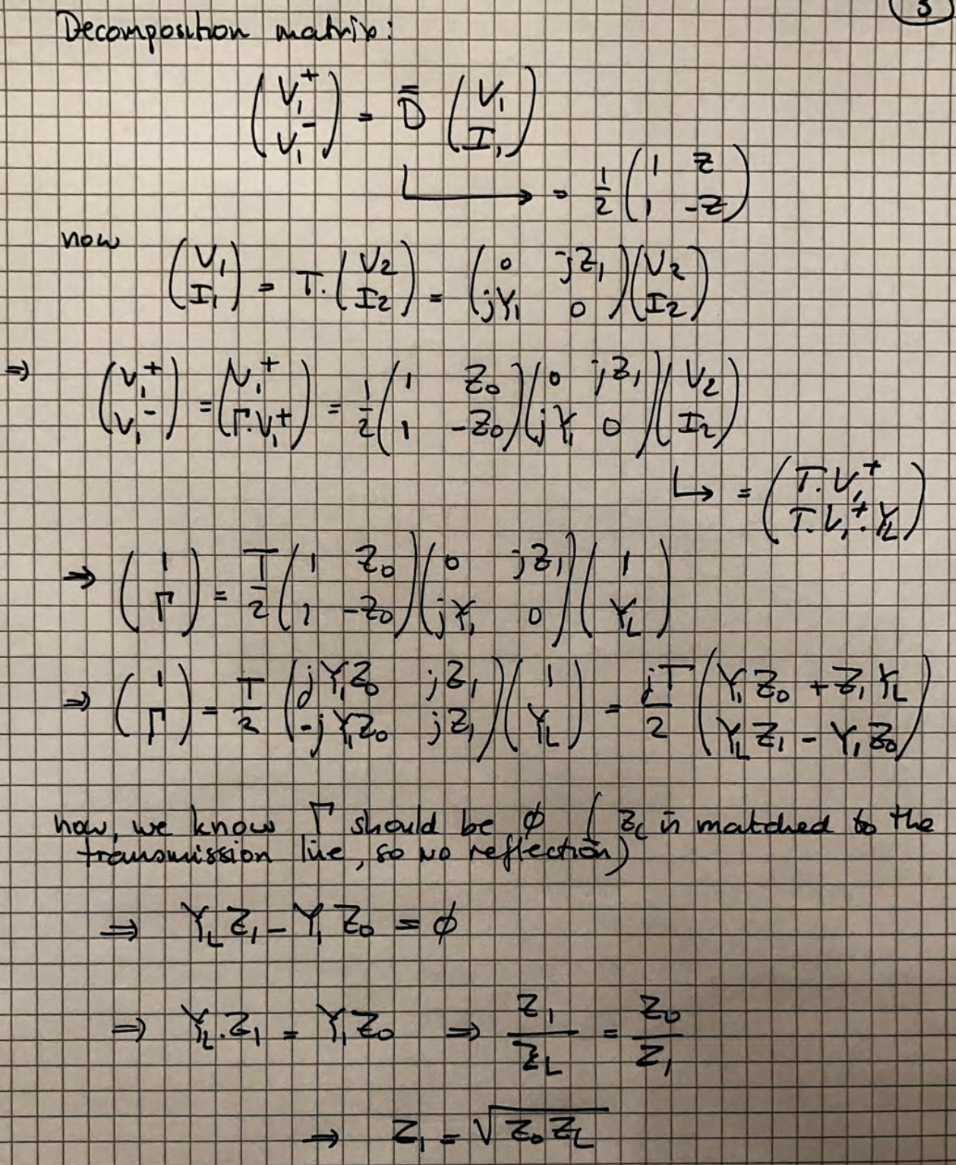 3
Decomposition matrix:
(V₁⁺ ; V₁⁻) = D̿ (V₁ ; I₁)
↳ = 1/2 (1 Z ; 1 -Z)
now (V₁ ; I₁) = T. (V₂ ; I₂) = (0 jZ₁ ; jY₁ 0)(V₂ ; I₂)
⇒ (V₁⁺ ; V₁⁻) = (V₁⁺ ; Γ.V₁⁺) = 1/2 (1 Z₀ ; 1 -Z₀)(0 jZ₁ ; jY₁ 0)(V₂ ; I₂)
↳ = (T.V₁⁺ ; T.V₁⁺.Y_L)
⇒ (1 ; Γ) = T/2 (1 Z₀ ; 1 -Z₀)(0 jZ₁ ; jY₁ 0)(1 ; Y_L)
⇒ (1 ; Γ) = T/2 (jY₁Z₀ jZ₁ ; -jY₁Z₀ jZ₁)(1 ; Y_L) = jT/2 (Y₁Z₀ + Z₁Y_L ; Y_LZ₁ - Y₁Z₀)
now, we know Γ should be ϕ (Z_L is matched to the
transmission line, so no reflection)
⇒ Y_L Z₁ - Y₁ Z₀ = ϕ
⇒ Y_L.Z₁ = Y₁Z₀ ⇒ Z₁/Z_L = Z₀/Z₁
⇒ Z₁ = √(Z₀Z_L)